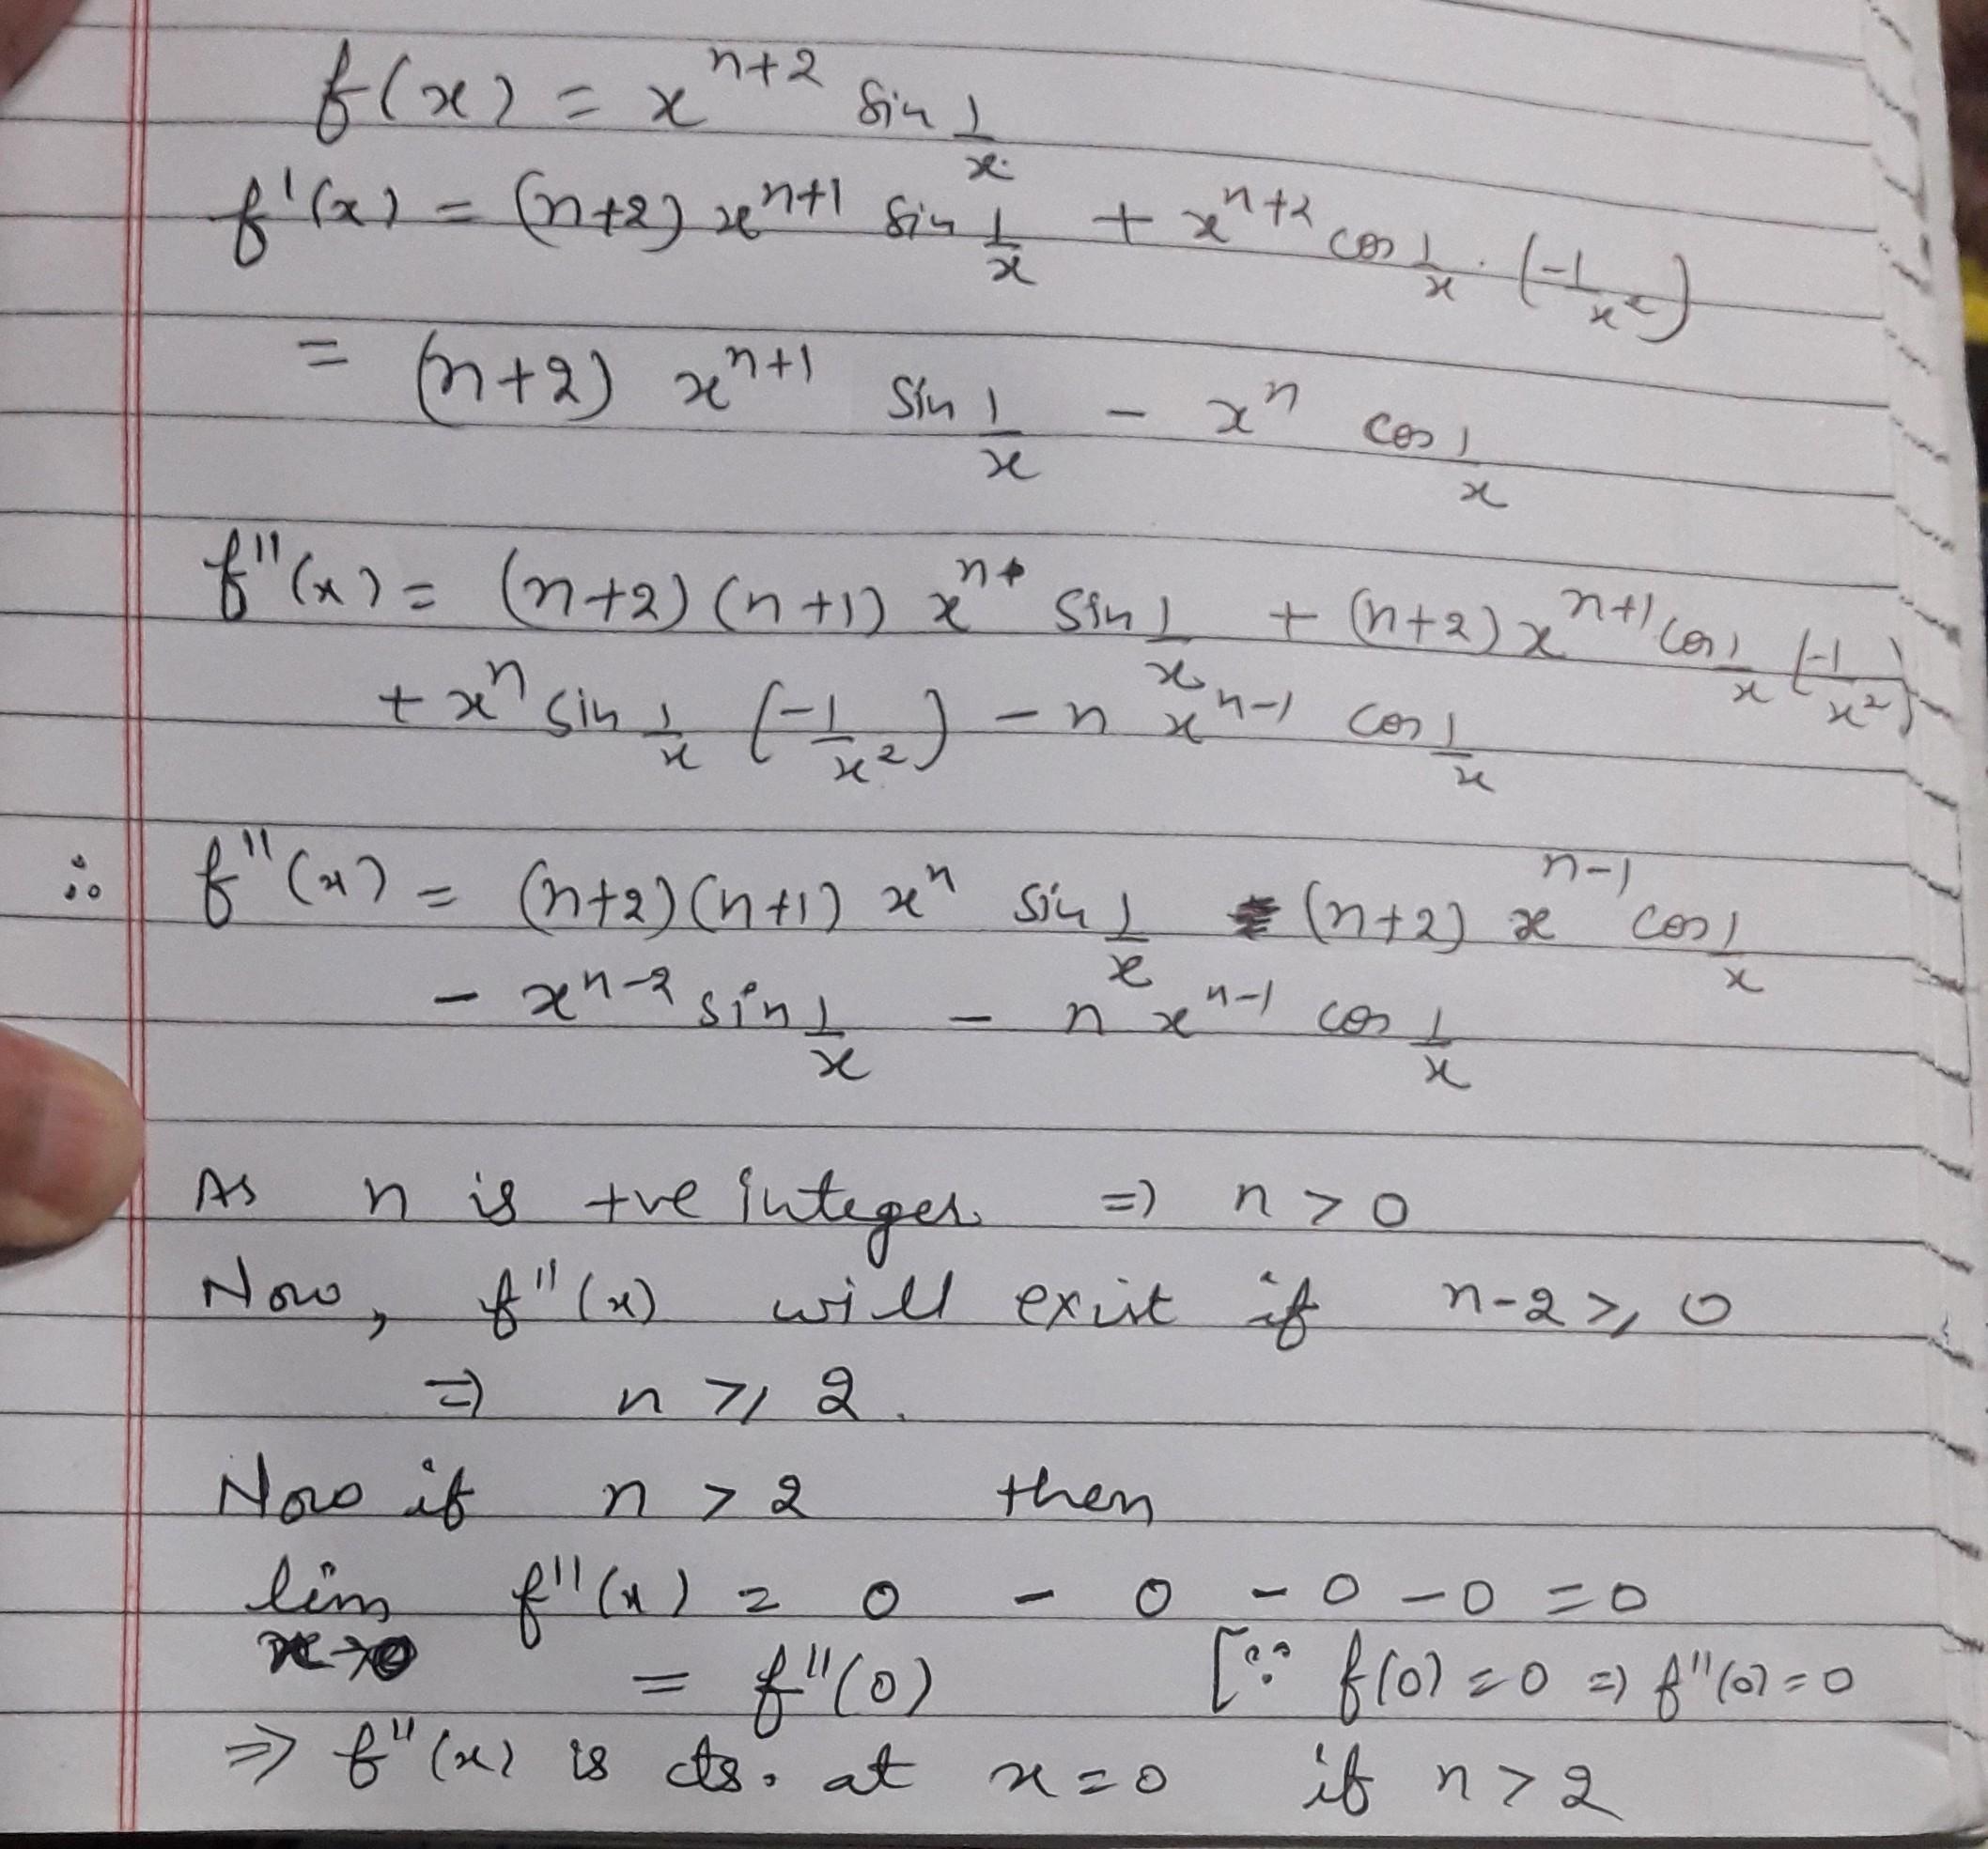 f(x) = x^{n+2} sin 1/x
f'(x) = (n+2) x^{n+1} sin 1/x + x^{n+2} cos 1/x . (-1/x^2)
= (n+2) x^{n+1} sin 1/x - x^n cos 1/x
f''(x) = (n+2)(n+1) x^n sin 1/x + (n+2) x^{n+1} cos 1/x (-1/x^2)
+ x^n sin 1/x (-1/x^2) - n x^{n-1} cos 1/x
∴ f''(x) = (n+2)(n+1) x^n sin 1/x - (n+2) x^{n-1} cos 1/x
- x^{n-2} sin 1/x - n x^{n-1} cos 1/x
As n is +ve integer ⇒ n > 0
Now, f''(x) will exist if n-2 ≥ 0
⇒ n ≥ 2.
Now if n > 2 then
lim x→0 f''(x) = 0 - 0 - 0 - 0 = 0
= f''(0) [∵ f(0) = 0 ⇒ f''(0) = 0
⇒ f''(x) is cts. at x = 0 if n > 2